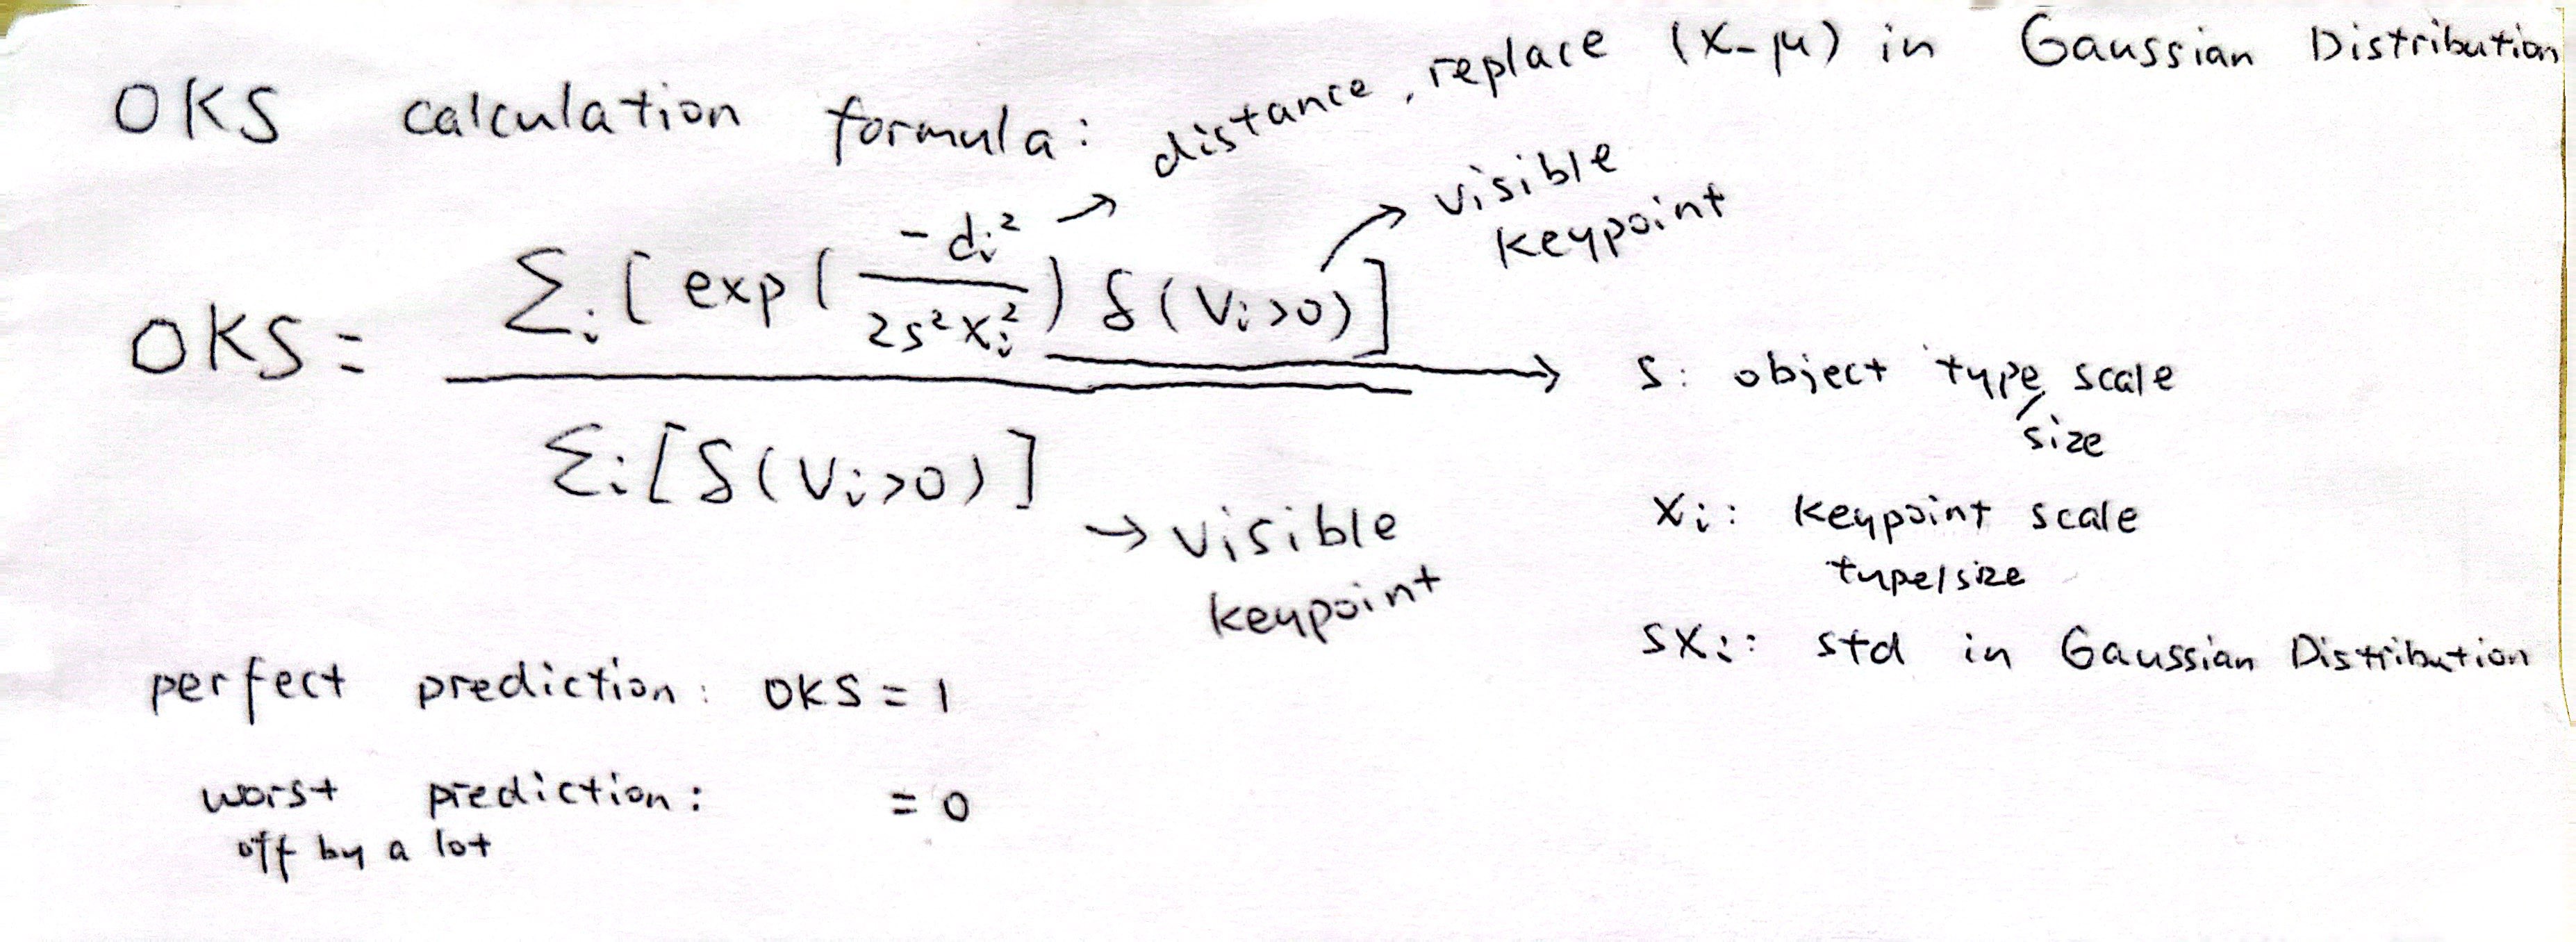 OKS calculation formula:
distance, replace (x-μ) in Gaussian Distribution
visible
keypoint
OKS = Σi [ exp ( -di² / 2s²xi² ) δ(Vi>0) ] / Σi [ δ(Vi>0) ]
→ visible
keypoint
s: object type scale
/size
xi: keypoint scale
type/size
sxi: std in Gaussian Distribution
perfect prediction: OKS = 1
worst prediction: = 0
off by a lot